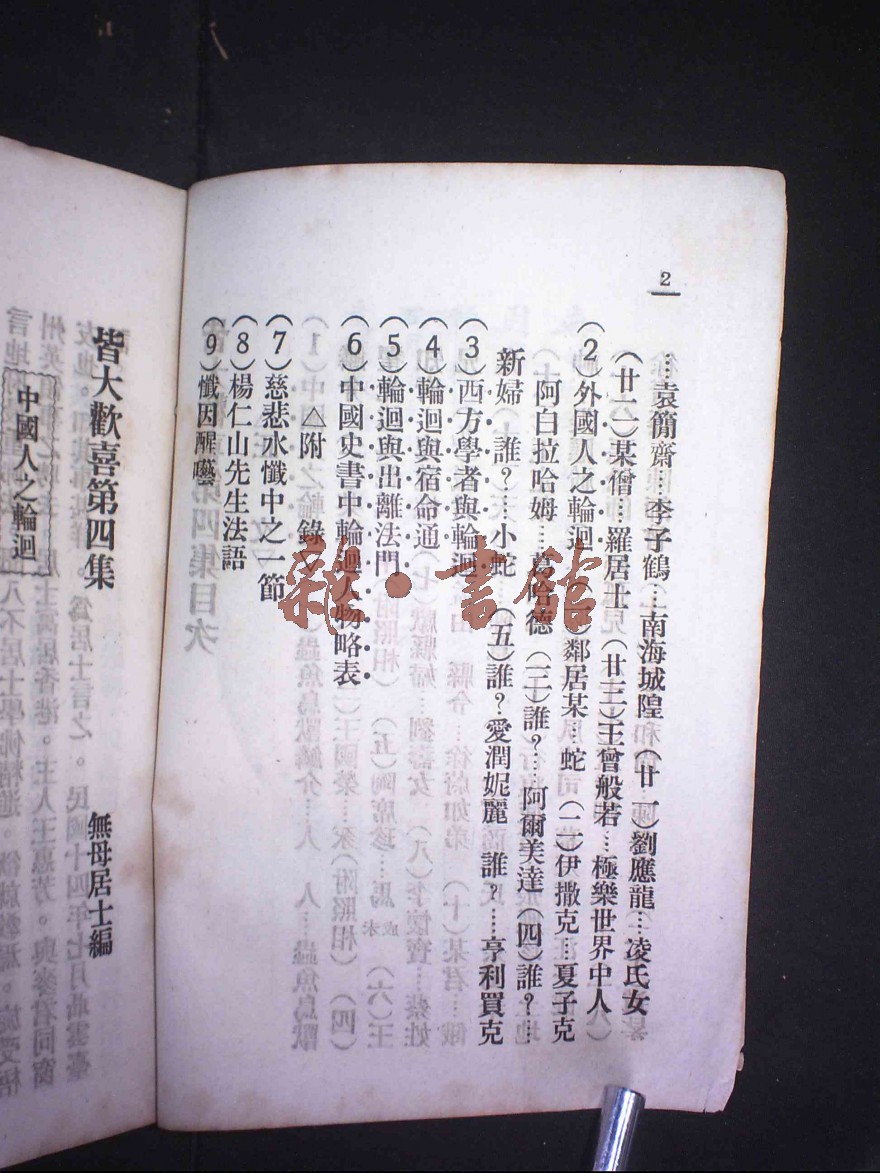 2
…袁簡齋…李子鶴…南海城隍 （廿一）劉應龍…凌氏女
（廿二）某僧…羅居士 （廿三）王曾般若…極樂世界中人
（2）外國人之輪迴 （一）鄰居某…蛇 （二）伊撒克…夏子克
阿白拉哈姆…葛哈德 （三）誰？…阿爾美達 （四）誰？…
新婦 誰？…小蛇 （五）誰？愛潤妮麗 誰？…亨利買克
（3）西方學者與輪迴
（4）輪迴與宿命通
（5）輪迴與出離法門
（6）中國史書中輪迴人物略表
△附 錄▽
（7）慈悲水懺中之一節
（8）楊仁山先生法語
（9）懺因醒囈
皆大歡喜第四集
無母居士編
中國人之輪迴
雜·書館